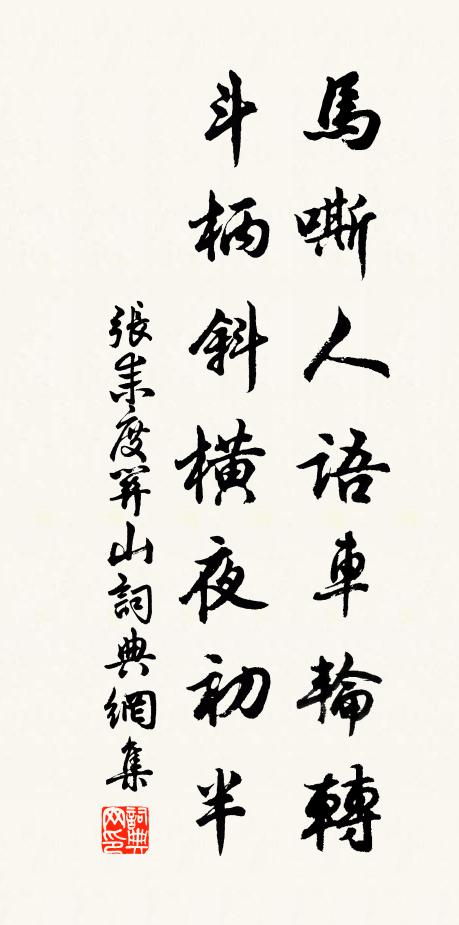 馬嘶人語車輪轉
斗柄斜橫夜初半
張耒度關山詞典網集
詞典網印